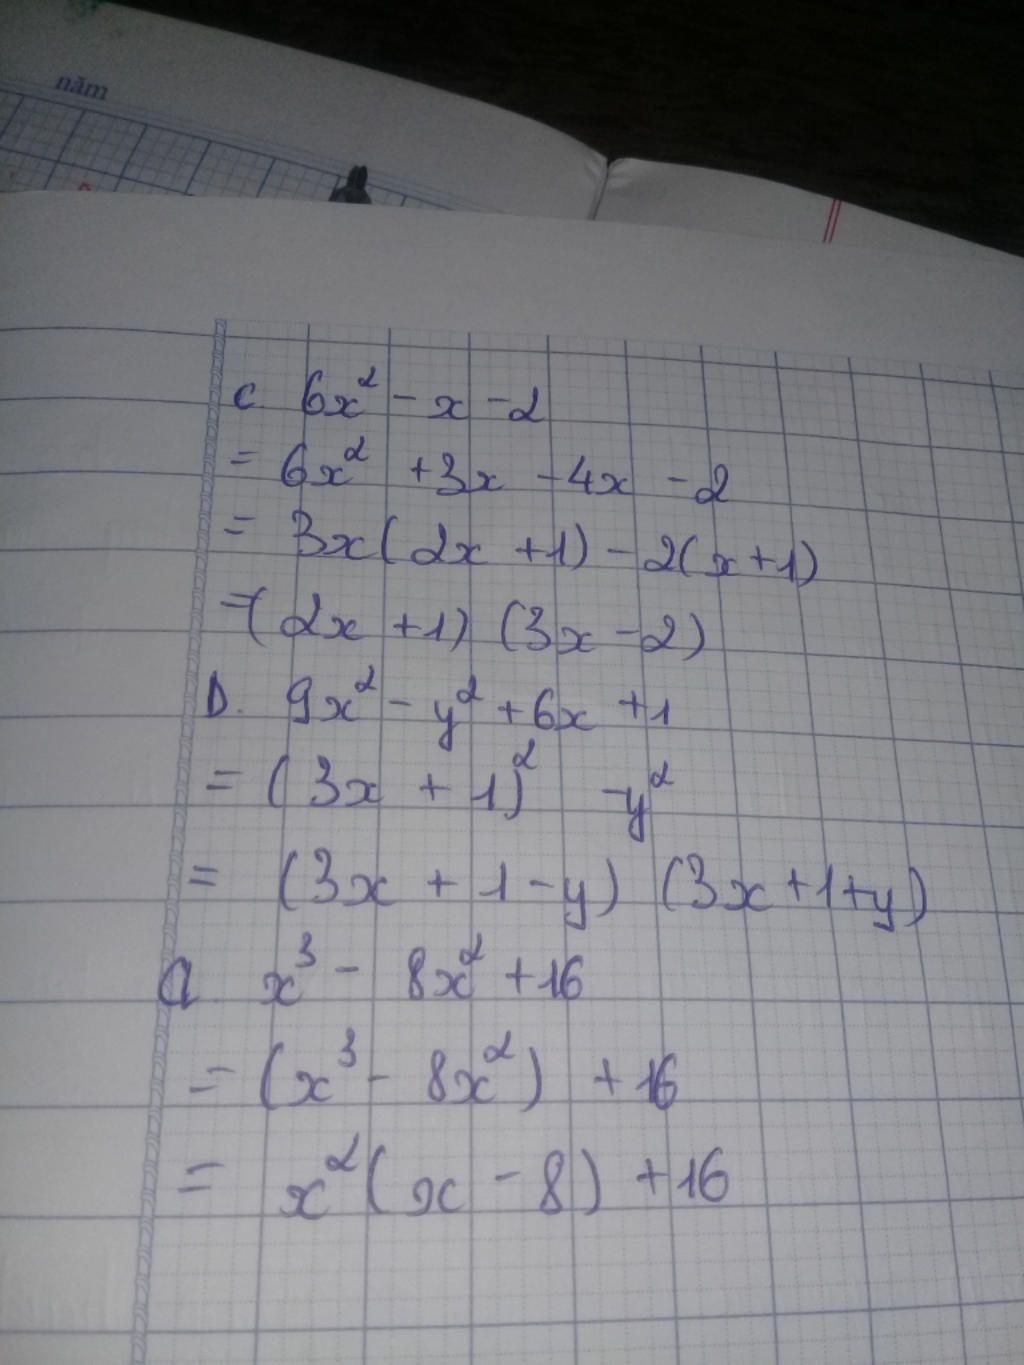 năm
c. 6x² - x - 2
= 6x² + 3x - 4x - 2
= 3x(2x + 1) - 2(x + 1)
= (2x + 1) (3x - 2)
D. 9x² - y² + 6x + 1
= (3x + 1)² - y²
= (3x + 1 - y) (3x + 1 + y)
a x³ - 8x² + 16
= (x³ - 8x²) + 16
= x²(x - 8) + 16